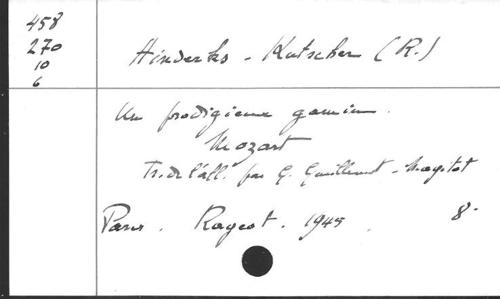 458
270
10
6
Hinderks-Kutscher (R.)
Un prodigieux gamin.
Mozart
Tr. de l'all. par G. Guillemot-Magitot
Paris. Rageot. 1945. 8°